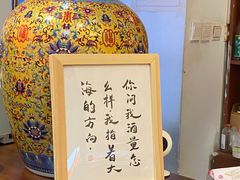 你问我酒量怎
么样我指着大
海的方向.